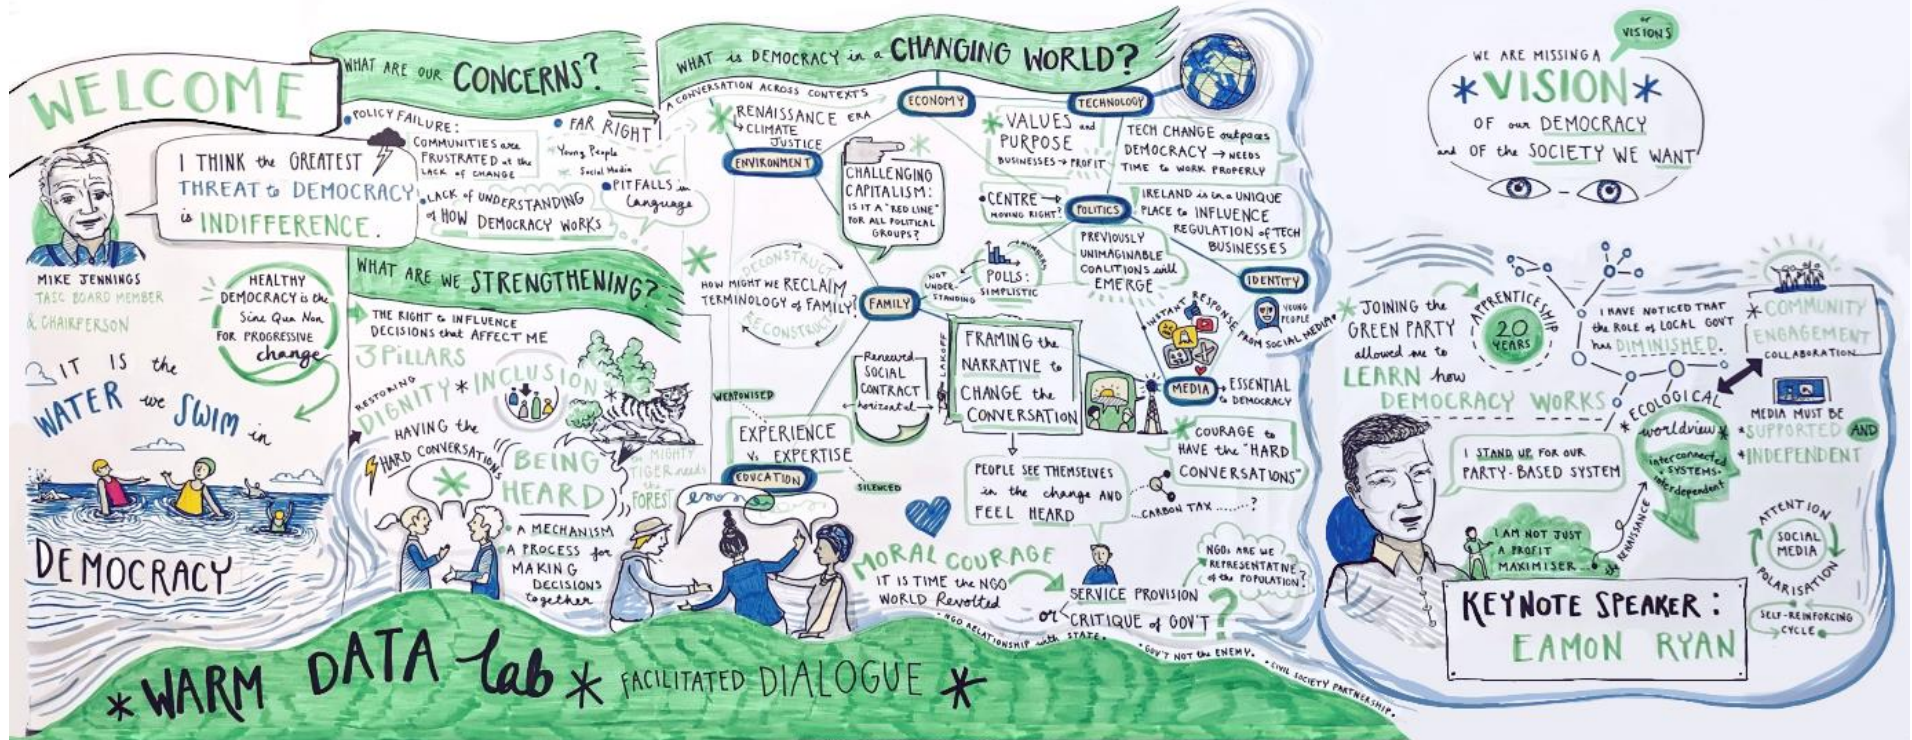 WELCOME
I THINK the GREATEST
THREAT to DEMOCRACY
is INDIFFERENCE.
MIKE JENNINGS
TASC BOARD MEMBER
& CHAIRPERSON
HEALTHY
DEMOCRACY is the
Sine Qua Non
FOR PROGRESSIVE
change
IT IS the
WATER we SWIM in
DEMOCRACY
WHAT ARE OUR CONCERNS?
POLICY FAILURE:
COMMUNITIES are
FRUSTRATED at the
LACK of CHANGE
FAR RIGHT
Young People
Social Media
LACK of UNDERSTANDING
of HOW DEMOCRACY WORKS
PITFALLS in
Language
WHAT ARE WE STRENGTHENING?
THE RIGHT to INFLUENCE
DECISIONS that AFFECT ME
3 PILLARS
RESTORING
DIGNITY * INCLUSION
HAVING the
HARD CONVERSATIONS
BEING
HEARD
MIGHTY
TIGER needs
the
FOREST
A MECHANISM
A PROCESS for
MAKING
DECISIONS
together
WHAT is DEMOCRACY in a CHANGING WORLD?
A CONVERSATION ACROSS CONTEXTS
RENAISSANCE ERA
CLIMATE
JUSTICE
ENVIRONMENT
ECONOMY
TECHNOLOGY
CHALLENGING
CAPITALISM:
IS IT A "RED LINE"
FOR ALL POLITICAL
GROUPS?
VALUES and
PURPOSE
BUSINESSES → PROFIT
TECH CHANGE outpaces
DEMOCRACY → NEEDS
TIME to WORK PROPERLY
CENTRE
MOVING RIGHT?
POLITICS
IRELAND is in a UNIQUE
PLACE to INFLUENCE
REGULATION of TECH
BUSINESSES
PREVIOUSLY
UNIMAGINABLE
COALITIONS will
EMERGE
NUMBERS
POLLS:
SIMPLISTIC
NOT
UNDER-
STANDING
DECONSTRUCT
HOW MIGHT WE RECLAIM
TERMINOLOGY of FAMILY?
RECONSTRUCT
FAMILY
IDENTITY
YOUNG
PEOPLE
FROM SOCIAL MEDIA
INSTANT RESPONSE
Renewed
SOCIAL
CONTRACT
horizontal
LAKOFF
FRAMING the
NARRATIVE to
CHANGE the
CONVERSATION
MEDIA
ESSENTIAL
to DEMOCRACY
WEAPONISED
EXPERIENCE
Vs EXPERTISE
EDUCATION
SILENCED
PEOPLE SEE THEMSELVES
in the change AND
FEEL HEARD
COURAGE to
HAVE the "HARD
CONVERSATIONS"
...CARBON TAX......?
MORAL COURAGE
IT IS TIME the NGO
WORLD Revolted
SERVICE PROVISION
or CRITIQUE of GOV'T ?
NGOs ARE WE
REPRESENTATIVE
of the POPULATION?
NGO RELATIONSHIP with STATE.
GOV'T NOT the ENEMY.
CIVIL SOCIETY PARTNERSHIP.
* WARM DATA Lab * FACILITATED DIALOGUE *
or
VISIONS
WE ARE MISSING A
* VISION *
OF our DEMOCRACY
and OF the SOCIETY WE WANT
JOINING the
GREEN PARTY
allowed me to
LEARN how
DEMOCRACY WORKS
APPRENTICESHIP
20
YEARS
I HAVE NOTICED THAT
the ROLE of LOCAL GOV'T
has DIMINISHED.
* COMMUNITY
ENGAGEMENT
COLLABORATION
* ECOLOGICAL
worldview *
interconnected
SYSTEMS.
interdependent
MEDIA MUST BE
* SUPPORTED AND
* INDEPENDENT
I STAND UP FOR OUR
PARTY-BASED SYSTEM
I AM NOT JUST
A PROFIT
MAXIMISER
RENAISSANCE
ATTENTION
SOCIAL
MEDIA
POLARISATION
SELF-REINFORCING
CYCLE
KEYNOTE SPEAKER:
EAMON RYAN